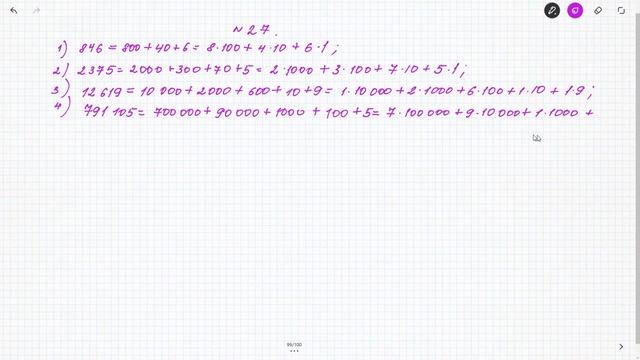 №27.
1) 846 = 800+40+6 = 8·100 + 4·10 + 6·1;
2) 2375 = 2000+300+70+5 = 2·1000 + 3·100 + 7·10 + 5·1;
3) 12 619 = 10 000 + 2000 + 600 + 10 + 9 = 1·10 000 + 2·1000 + 6·100 + 1·10 + 1·9;
4) 791 105 = 700 000 + 90 000 + 1000 + 100 + 5 = 7·100 000 + 9·10 000 + 1·1000 +
99/100